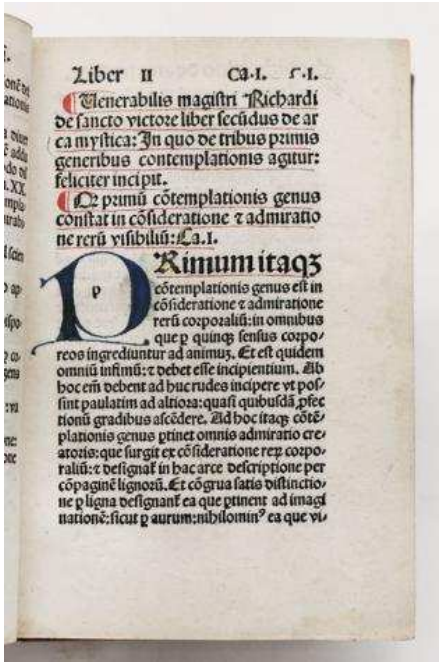 Liber II Ca.I. f.I.
¶Uenerabilis magistri Richardi
de sancto victore liber secūdus de ar
ca mystica: In quo de tribus primis
generibus contemplationis agitur:
feliciter incipit.
¶Qꝫ primū cōtemplationis genus
constat in cōsideratione ⁊ admiratio
ne rerū visibiliū: Ca.I.
PRimum itaqꝫ
cōtemplationis genus est in
cōsideratione ⁊ admiratione
rerū corporaliū: in omnibus
que ꝑ quinqꝫ sensus corpo⸗
reos ingrediuntur ad animuꝫ. Et est quidem
omniū infimū: ⁊ debet esse incipientium. Ab
hoc em̄ debent ad huc rudes incipere vt pos⸗
sint paulatim ad altiora: quasi quibusdā ꝓfec
tionū gradibus ascēdere. Ad hoc itaqꝫ cōtē⸗
plationis genus ꝑtinet omnis admiratio cre⸗
atoris: que surgit ex cōsideratione reꝝ corpo⸗
raliū: ⁊ designat̄ in hac arce descriptione per
cōpaginē lignorū. Et cōgrua satis distinctio⸗
ne ꝑ ligna designant̄ ea que ꝑtinent ad imagi
nationē: sicut ꝑ aurum: nihilominꝰ ea que vi⸗